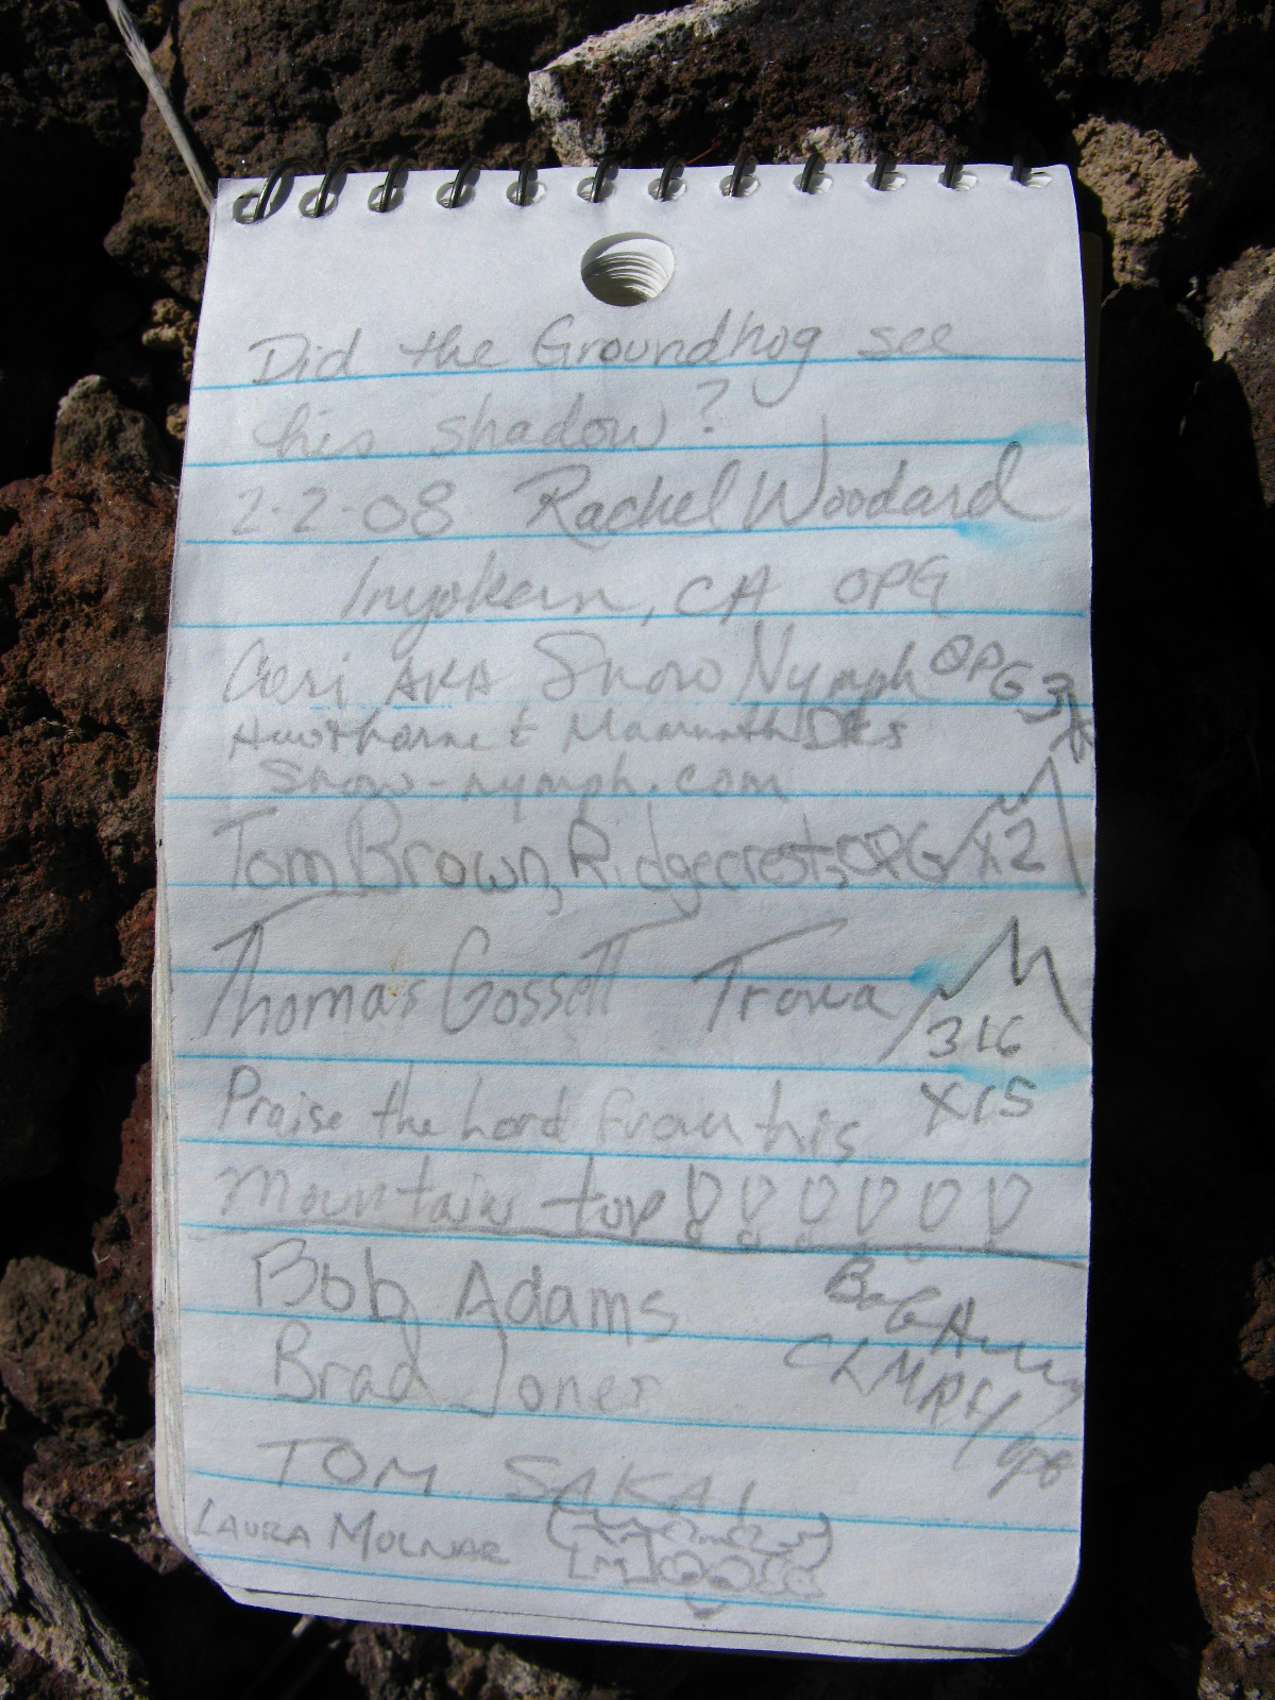 Did the Groundhog see
his shadow?
2-2-08 Rachel Woodard
Inyokern, CA OPG
AKA Snow Nymph OPG
& Mammoth
snow-nymph.com
Tom Brown, Ridgecrest, OPG X2
Thomas Gossett Trona
316
X15
Praise the Lord from his
mountain top
Bob Adams
Brad Jones
CLMRG
TOM SAKAI
LAURA MOLNAR